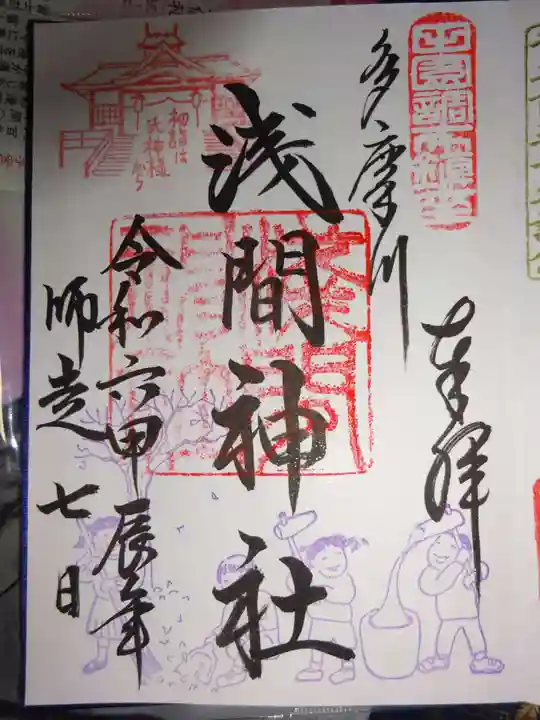 奉拝
多摩川
浅間神社
令和六甲辰年
師走七日
初詣は
氏神様
から